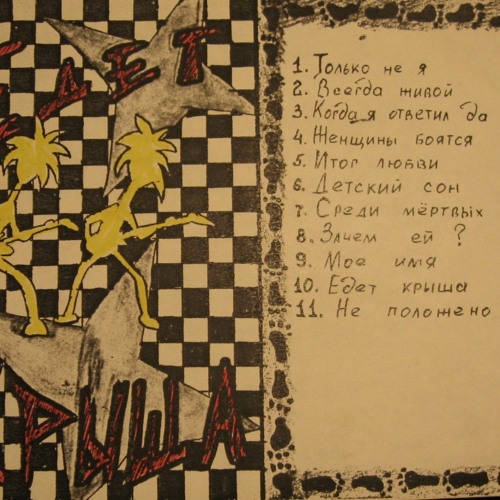 ЕДЕТ
РЫША
1. Только не я
2. Всегда живой
3. Когда я ответил да
4. Женщины боятся
5. Итог любви
6. Детский сон
7. Среди мёртвых
8. Зачем ей ?
9. Мое имя
10. Едет крыша
11. Не положено